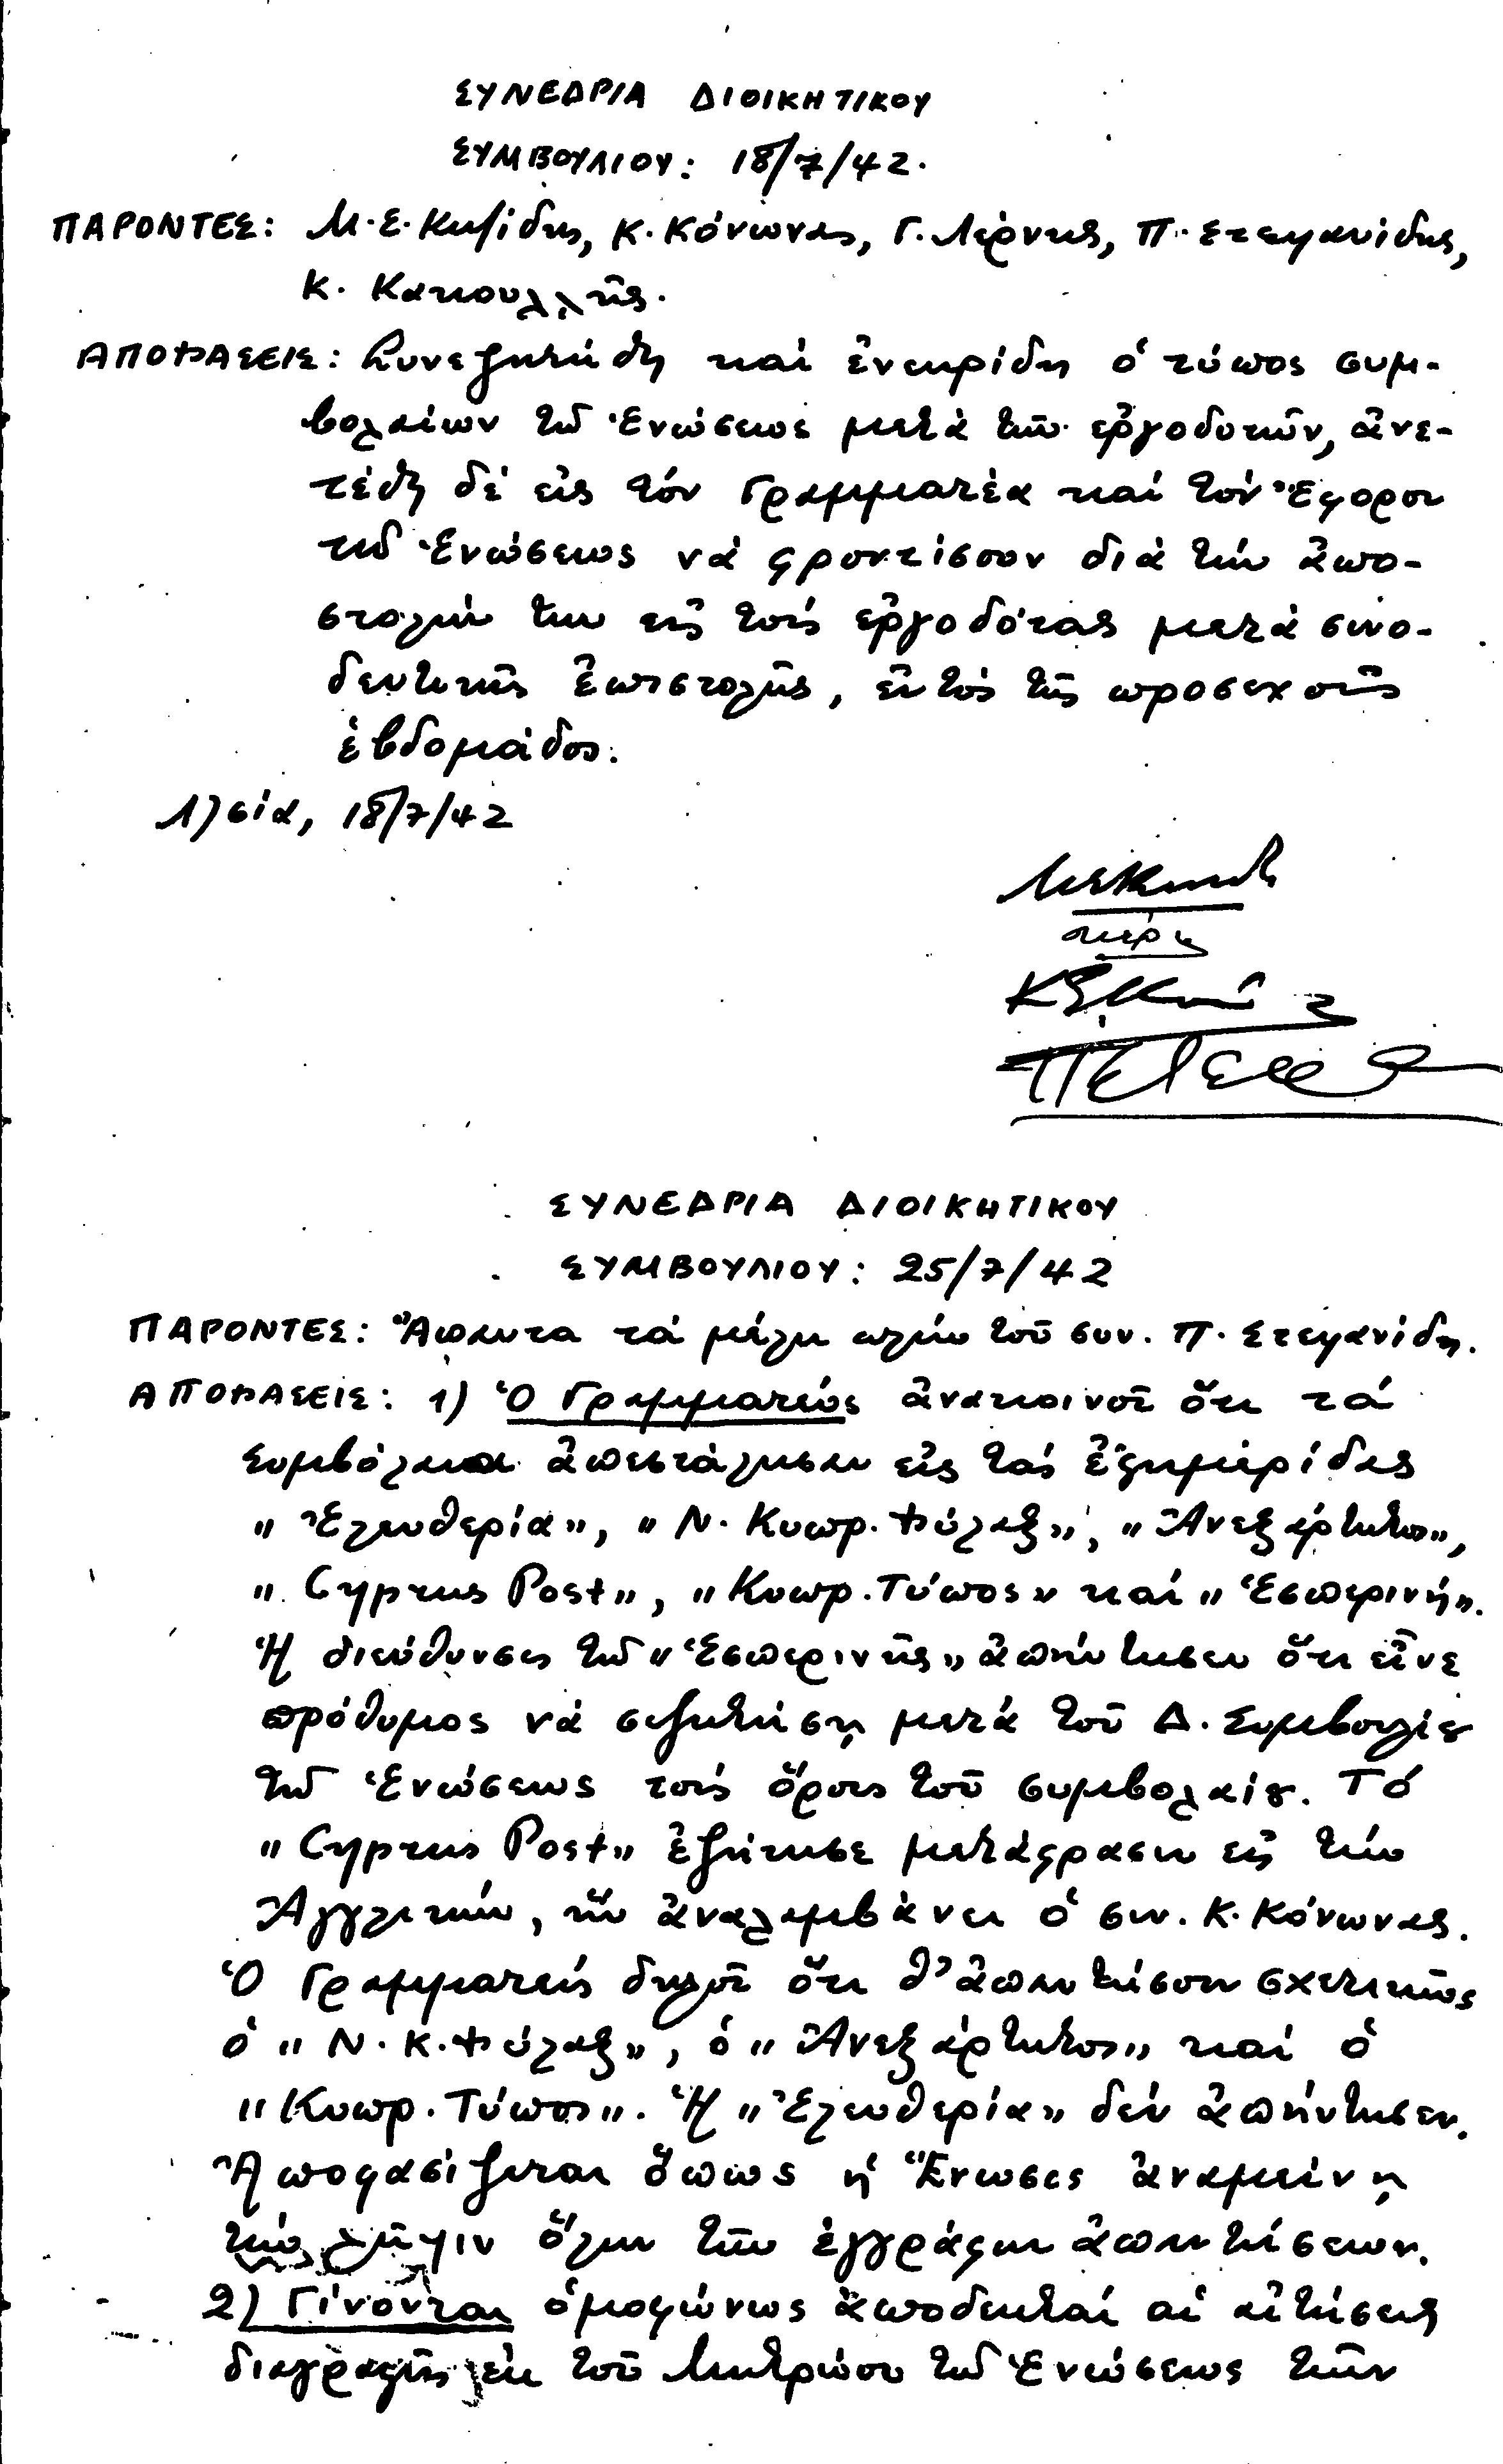 ΣΥΝΕΔΡΙΑ ΔΙΟΙΚΗΤΙΚΟΥ
ΣΥΜΒΟΥΛΙΟΥ: 18/7/42.
ΠΑΡΟΝΤΕΣ: Μ.Ε. Κιτρίδης, Κ. Κόνωνας, Γ. Λέρνης, Π. Στεφανίδης,
Κ. Κακουλλῆς.
ΑΠΟΦΑΣΕΙΣ: Συνεζητήθη καί ἐνεκρίθη ὁ τύπος συμ-
βολαίων τῆς Ἑνώσεως μετά τῶν ἐργοδοτῶν, ἀνε-
τέθη δέ εἰς τόν Γραμματέα καί τόν Ἔφορον
τῆς Ἑνώσεως νά φροντίσουν διά τήν ἀπο-
στολήν των εἰς τούς ἐργοδότας μετά συνο-
δευτικῆς ἐπιστολῆς, ἐντός τῆς προσεχοῦς
ἑβδομάδος.
Λ)σία, 18/7/42
ΣΥΝΕΔΡΙΑ ΔΙΟΙΚΗΤΙΚΟΥ
ΣΥΜΒΟΥΛΙΟΥ: 25/7/42
ΠΑΡΟΝΤΕΣ: Ἅπαντα τά μέλη πλήν τοῦ συν. Π. Στεφανίδη.
ΑΠΟΦΑΣΕΙΣ: 1) Ὁ Γραμματεύς ἀνακοινοῖ ὅτι τά
Συμβόλαια ἀπεστάλησαν εἰς τάς ἐφημερίδας
"Ἐλευθερία", "Ν. Κυπρ. Φύλαξ", "Ἀνεξάρτητος",
"Cyprus Post", "Κυπρ. Τύπος" καί "Ἑσπερινή".
Ἡ διεύθυνσις τῆς "Ἑσπερινῆς" ἀπήντησεν ὅτι εἶνε
πρόθυμος νά συζητήσῃ μετά τοῦ Δ. Συμβουλίου
τῆς Ἑνώσεως τούς ὅρους τοῦ συμβολαίου. Τό
"Cyprus Post" ἐζήτησε μετάφρασιν εἰς τήν
Ἀγγλικήν, ἥν ἀναλαμβάνει ὁ συν. Κ. Κόνωνας.
Ὁ Γραμματεύς δηλοῖ ὅτι θ' ἀπαντήσουν σχετικῶς
ὁ "Ν. Κ. Φύλαξ", ὁ "Ἀνεξάρτητος" καί ὁ
"Κυπρ. Τύπος". Ἡ "Ἐλευθερία" δέν ἀπήντησεν.
Ἀποφασίζεται ὅπως ἡ Ἕνωσις ἀναμείνῃ
τήν λῆψιν ὅλων τῶν ἐγγράφων ἀπαντήσεων.
2) Γίνονται ὁμοφώνως ἀποδεκταί αἱ αἰτήσεις
διαγραφῆς ἐκ τοῦ Μητρώου τῆς Ἑνώσεως τῶν